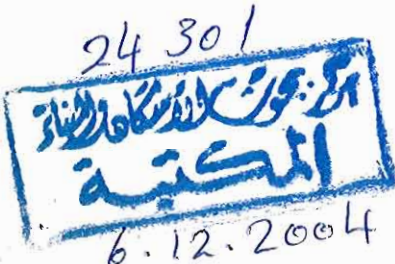 24 301
مركز بحوث الإسكان والبناء
المكتبة
6.12.2004